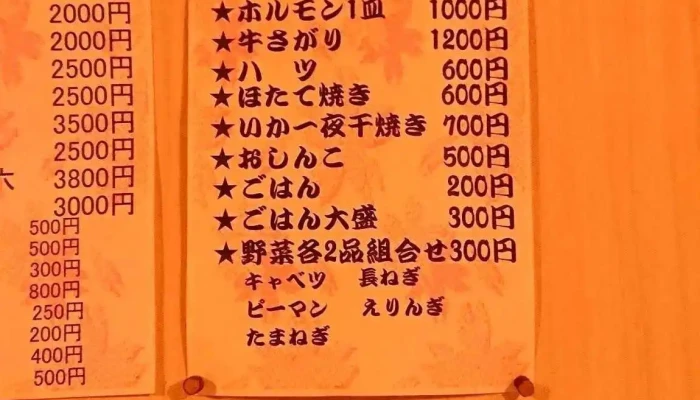 2000円
2000円
2500円
2500円
3500円
2500円
3800円
3000円
500円
500円
300円
800円
250円
200円
400円
500円
★ホルモン1皿 1000円
★牛さがり 1200円
★ハツ 600円
★ほたて焼き 600円
★いか一夜干焼き 700円
★おしんこ 500円
★ごはん 200円
★ごはん大盛 300円
★野菜各2品組合せ300円
キャベツ 長ねぎ
ピーマン えりんぎ
たまねぎ